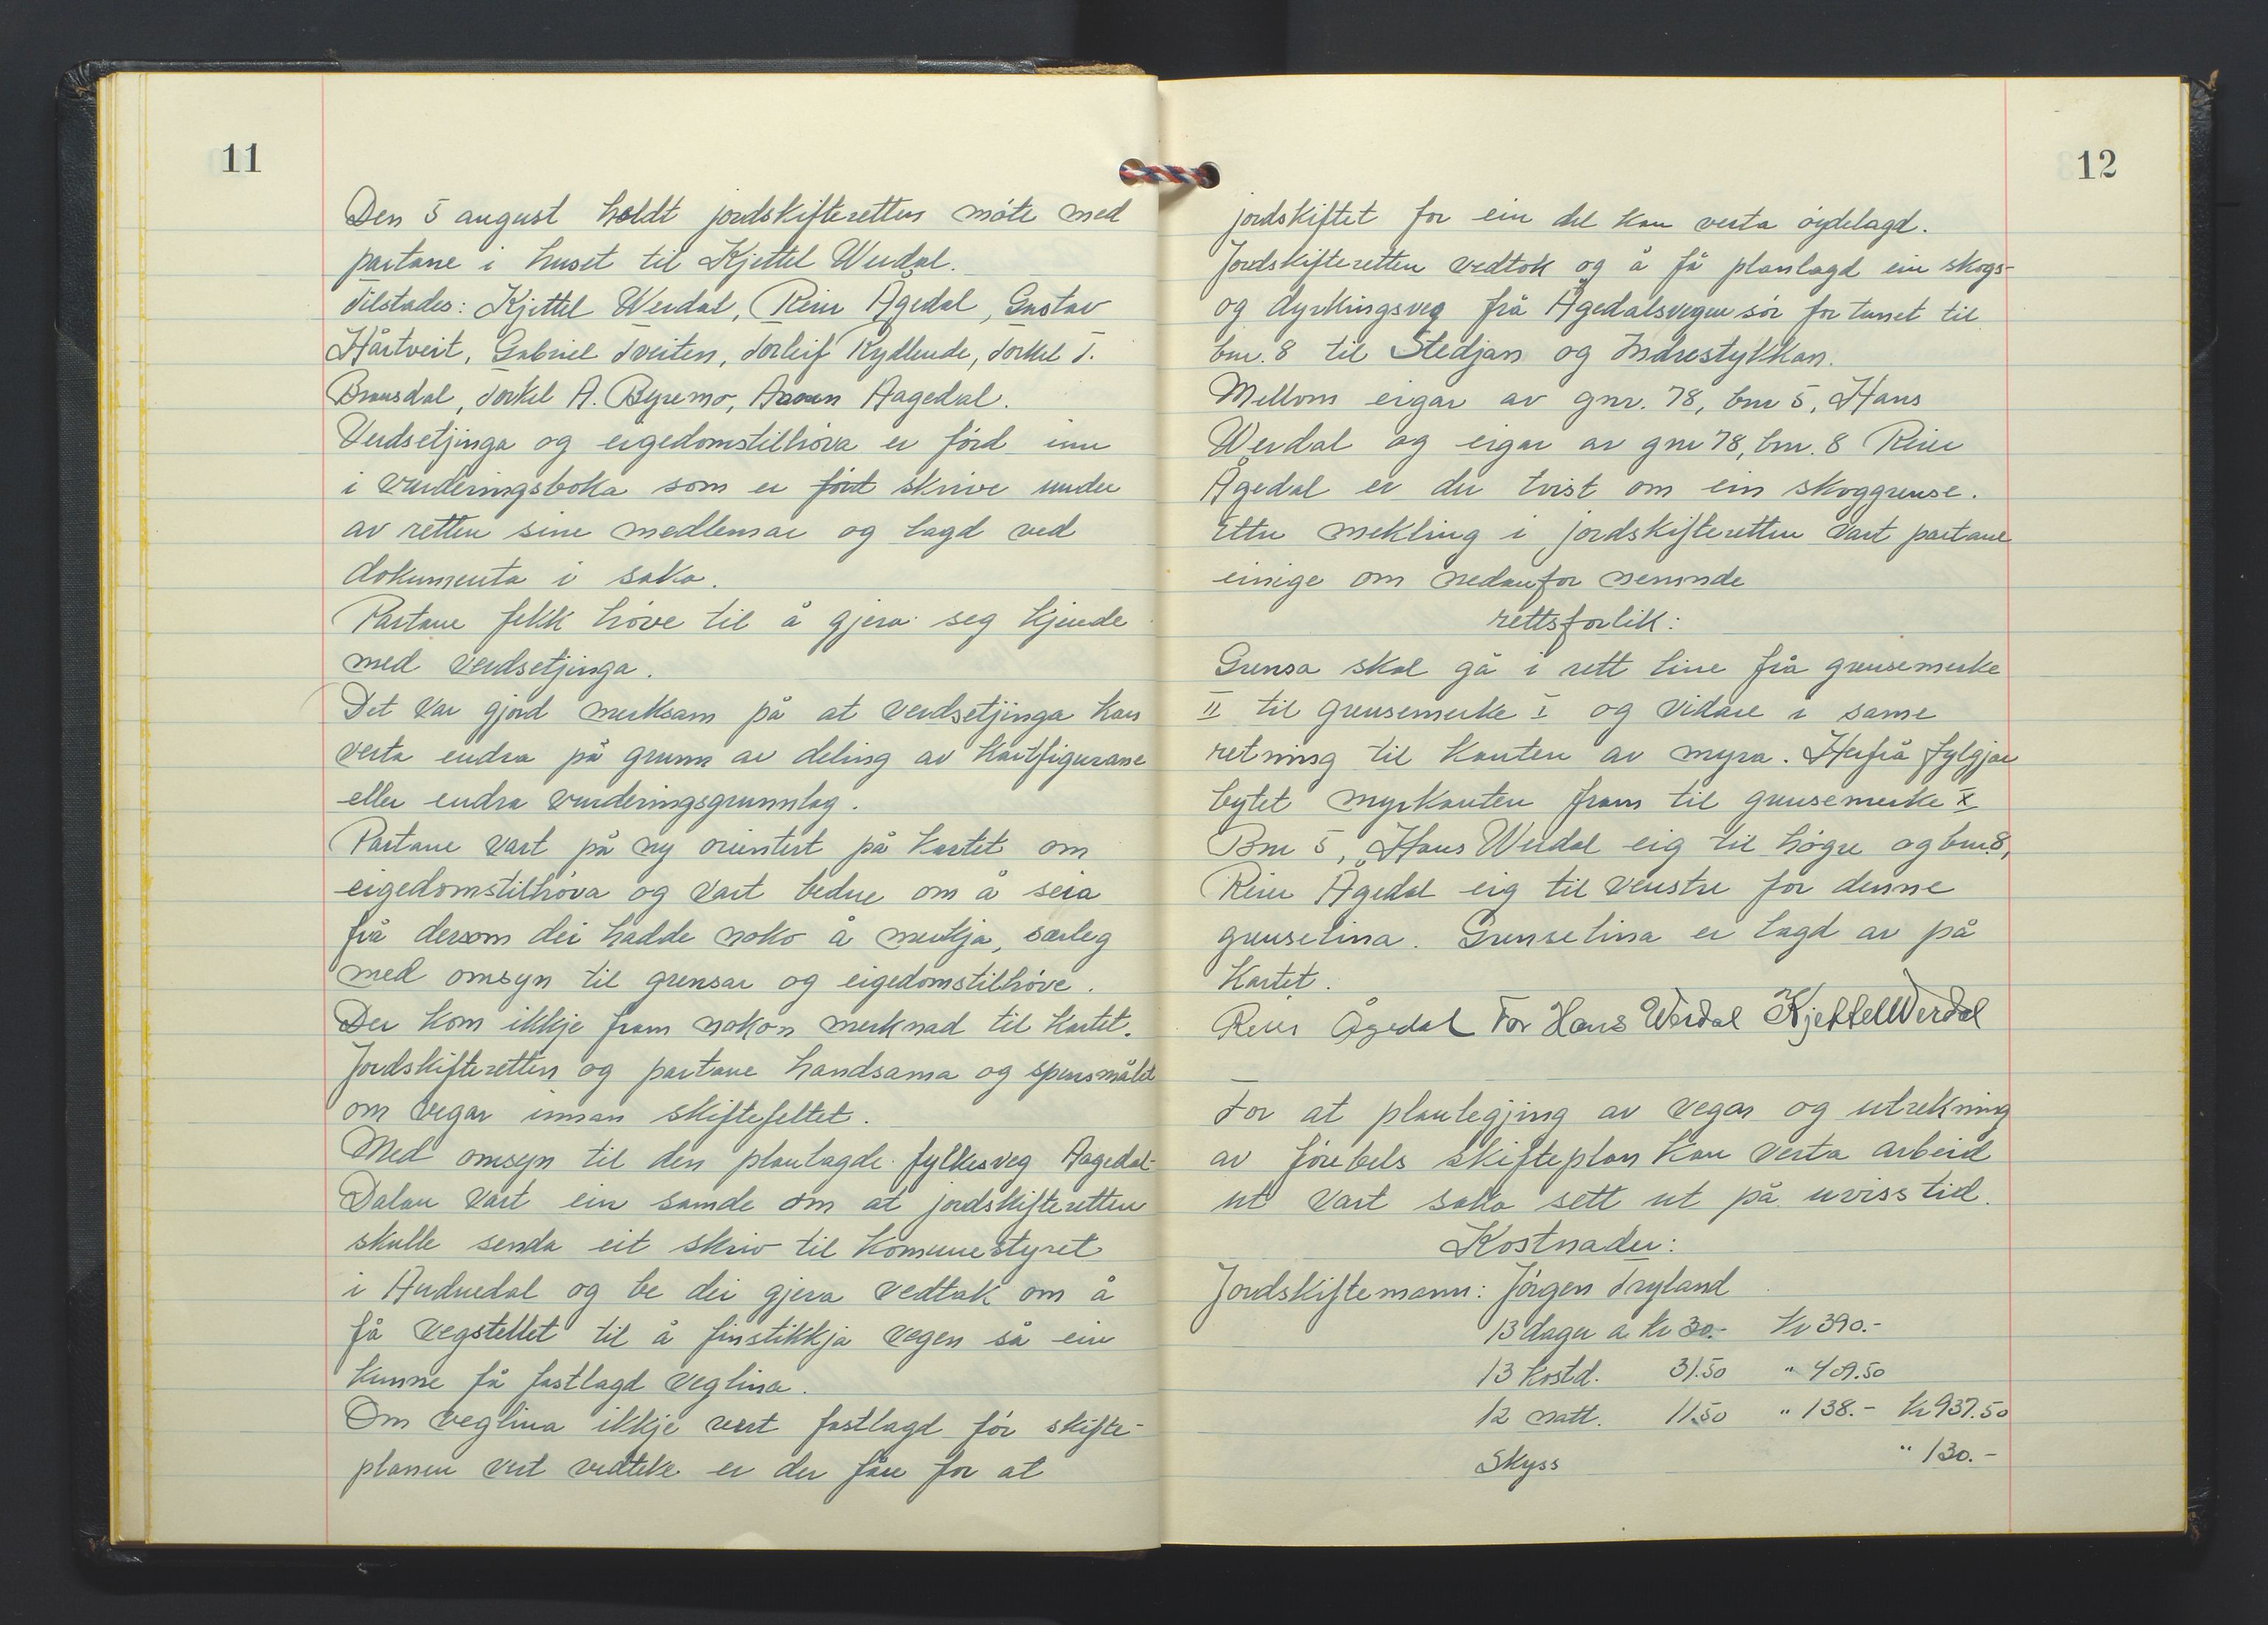 11
Den 5 august holdt jordskifteretten møte med
partane i huset til Kjettel Werdal.
Tilstades: Kjittel Werdal, Reier Ågedal, Gustav
Hårtveit, Gabriel Tveiten, Torleif Rydlende, Torkel T.
Brousdal, Torkel A. Byremo, Aanen Aagedal.
Verdsetjinga og eigedomstilhøva er førd inn
i vurderingsboka som er ført skrive under
av retten sine medlemar og lagd ved
dokumenta i saka.
Partane fekk høve til å gjera seg kjende
med verdsetjinga.
Det var gjord merksam på at verdsetjinga kan
verta endra på grunn av deling av kartfigurane
eller endra vurderingsgrunnlag.
Partane vart på ny orientert på kartet om
eigedomstilhøva og vart bedne om å seia
frå dersom dei hadde noko å merkja, særleg
med omsyn til grensar og eigedomstilhøve.
Der kom ikkje fram nokon merknad til kartet.
Jordskifteretten og partane handsama og spursmålet
om vegar innan skiftefeltet.
Med omsyn til den planlagde fylkesveg Aagedal-
Dalan vart ein samde om at jordskifteretten
skulle senda eit skriv til komunestyret
i Audnedal og be dei gjera vedtak om å
få vegstellet til å finstikkja vegen så ein
kunne få fastlagd veglina.
Om veglina ikkje vert fastlagd før skifte-
planen vert vedteke er der fåre for at
12
jordskiftet for ein del kan verta øydelagd.
Jordskifteretten vedtok og å få planlagd ein skogs-
og dyrkingsveg frå Ågedalsvegen sør for tunet til
bnr. 8 til Stedjan og Indrestykkan.
Mellom eigar av gnr. 78, bnr 5, Hans
Werdal og eigar av gnr 78, bnr. 8 Reier
Ågedal er der tvist om ein skoggrense.
Etter mekling i jordskifteretten vart partane
einige om nedanfor nemnde
rettsforlik:
Grensa skal gå i rett line frå grensemerke
II til grensemerke I og vidare i same
retning til kanten av myra. Herfrå fylgjer
bytet myrkanten fram til grensemerke X
Bnr 5, Hans Werdal eig til høgre og bnr. 8,
Reier Ågedal eig til venstre for denne
grenselina. Grenselina er lagd av på
kartet.
Reier Ågedal For Hans Werdal Kjettel Werdal
For at planlegjing av vegar og utrekning
av førebels skifteplan kan verta arbeid
ut vart saka sett ut på uviss tid.
Kostnader:
Jordskiftemann: Jørgen Tryland
13 dager a kr 30.- kr 390.-
13 kostd. 31.50 " 409.50
12 natt. 11.50 " 138.- kr 937.50
Skyss " 130.-